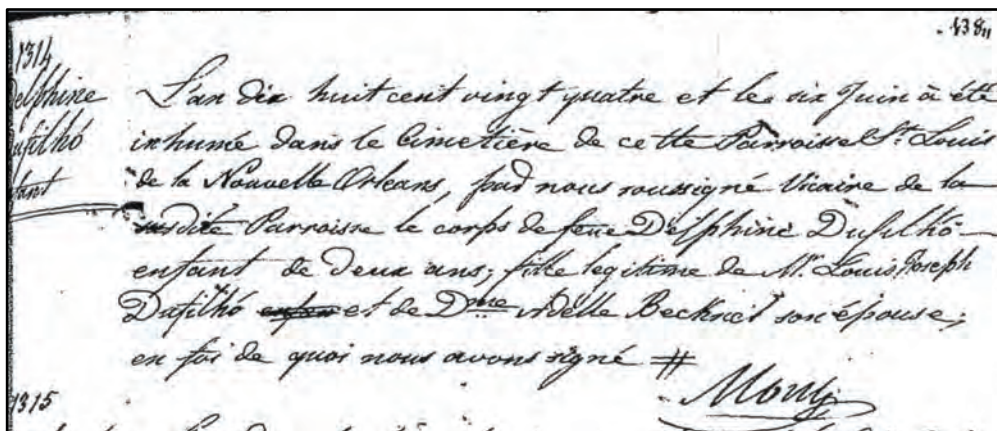 138
1314
Delphine
Dufilhó
L'an dix huit cent vingt quatre et le six Juin à été
inhumé dans le Cimetière de cette Parroisse St. Louis
de la Nouvelle Orleans, par nous soussigné Vicaire de la
susdite Parroisse le corps de feue Delphine Dufilhó
enfant de deux ans; fille legitime de Mr. Louis Joseph
Dufilhó enfan et de Dme Adelle Becknel son épouse;
en foi de quoi nous avons signé #
Mouly
1315